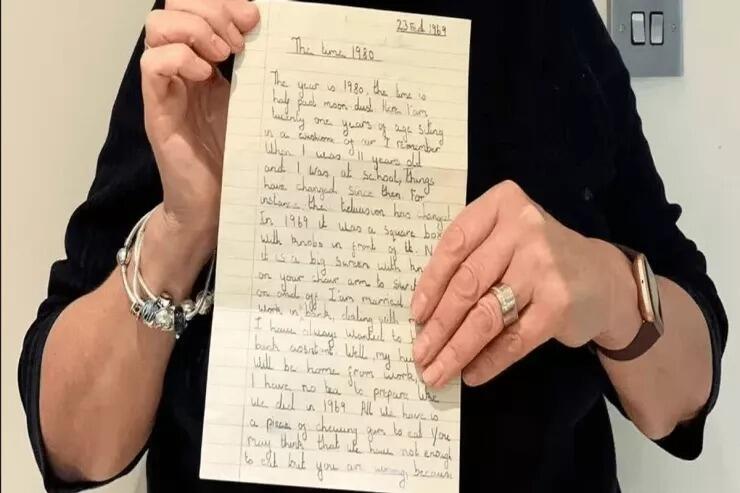 23 Feb 1969
The time 1980
The year is 1980, the time is
half past moon-dust. Here I'am
twenty one years of age siting
in a cushione of air I remember
When I was 11 years old
and I was at school, things
have changed since then For
instance the television has changed
In 1969 it was a square box
with knobs in front of it. N
it is a big screen with kn
on your chair arm to
on and off I'am married
work in a bank, dealing with m
I have always wanted to
bank assistant. Well, my hu
will be home from work,
I have no tea to prepare like
we did in 1969 All we have is
a piece of chewing gum to eat You
may think that we have not enough
to eat but you are wrong, because